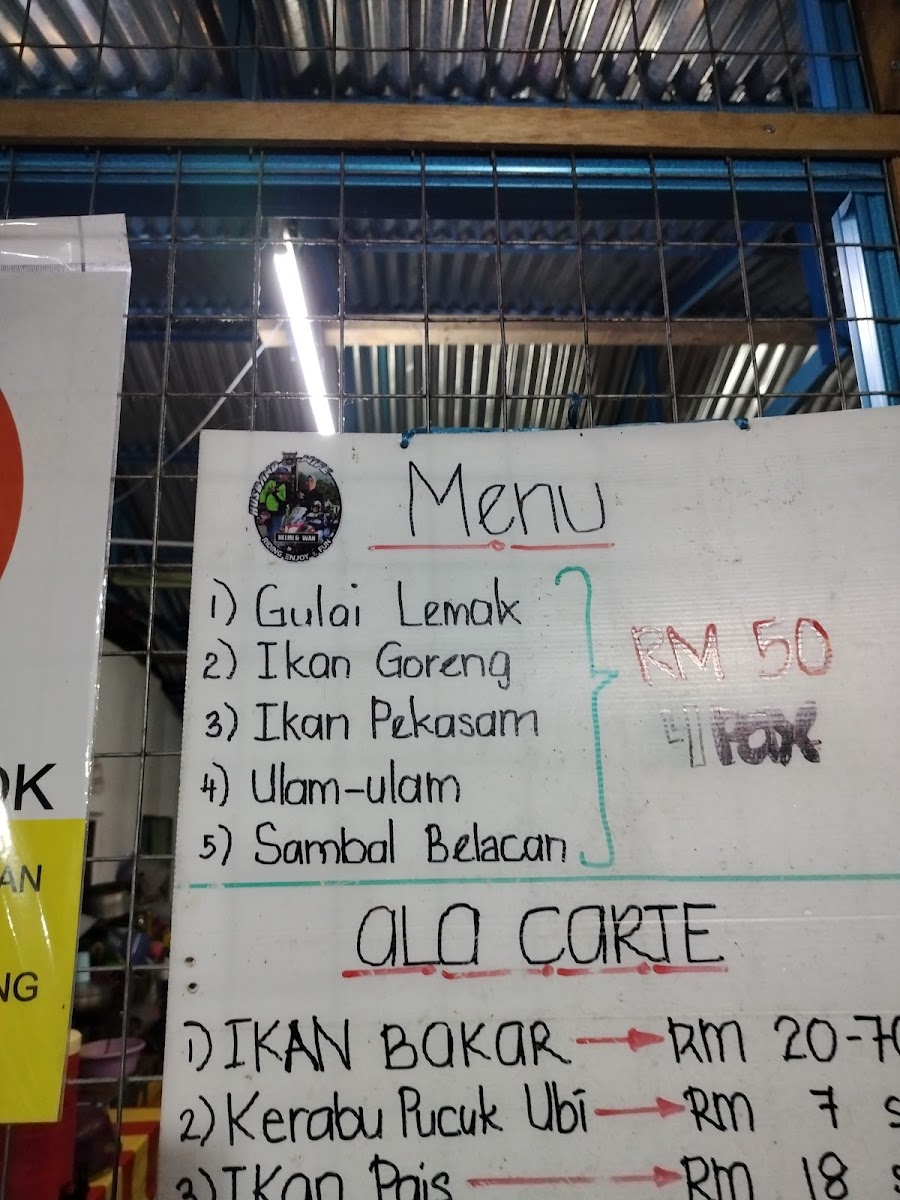 OK
AN
NG
HUSBAND WIFE
HELMI & WAN
RIDING ENJOY & FUN
Menu
1) Gulai Lemak
2) Ikan Goreng
3) Ikan Pekasam
4) Ulam-ulam
5) Sambal Belacan
RM 50
4 Pax
ALA CARTE
1) IKAN BAKAR → RM 20-70
2) Kerabu Pucuk Ubi → RM 7 s
3) Ikan Pais → RM 18 s